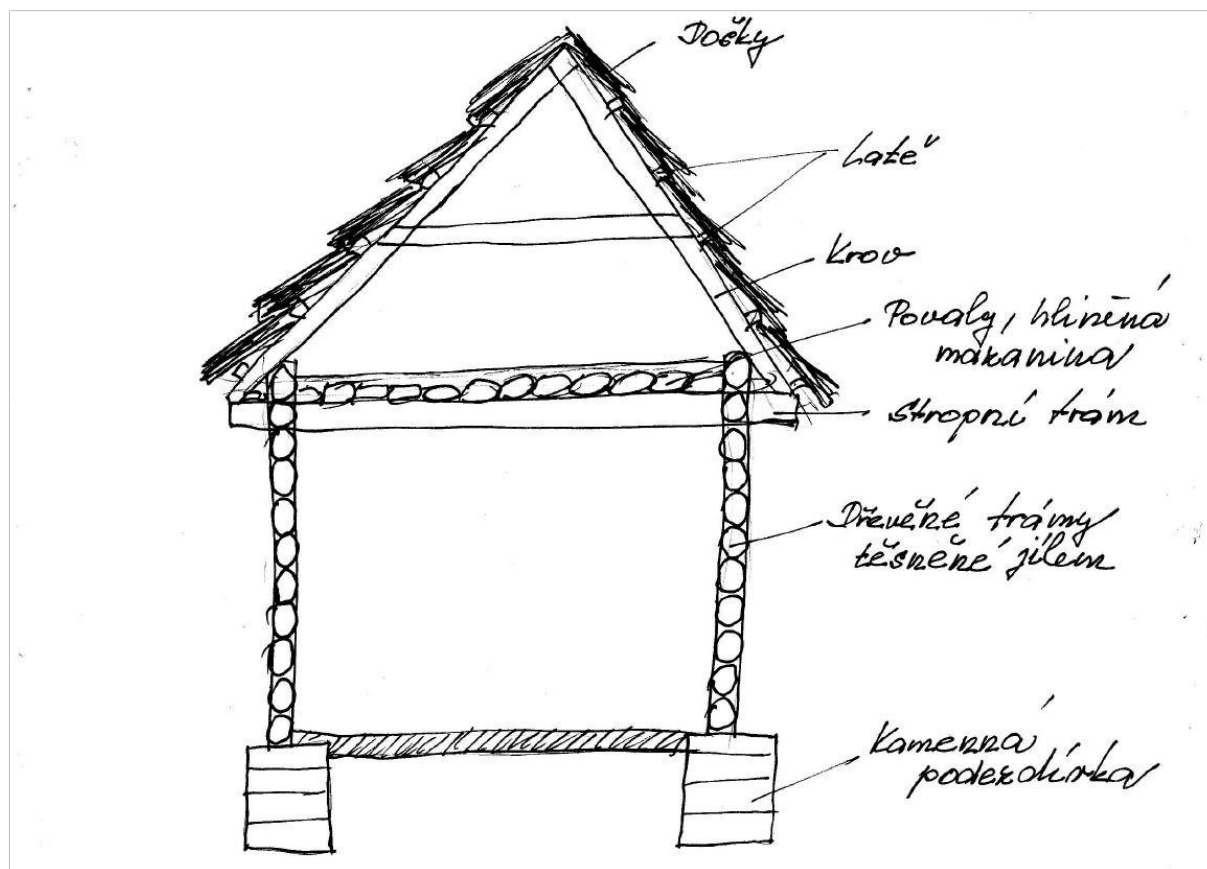 Došky
Latě
Krov
Povaly, hliněná
makanina
Stropní trám
Dřevěné trámy
těsněné jílem
Kamenná
podezdívka